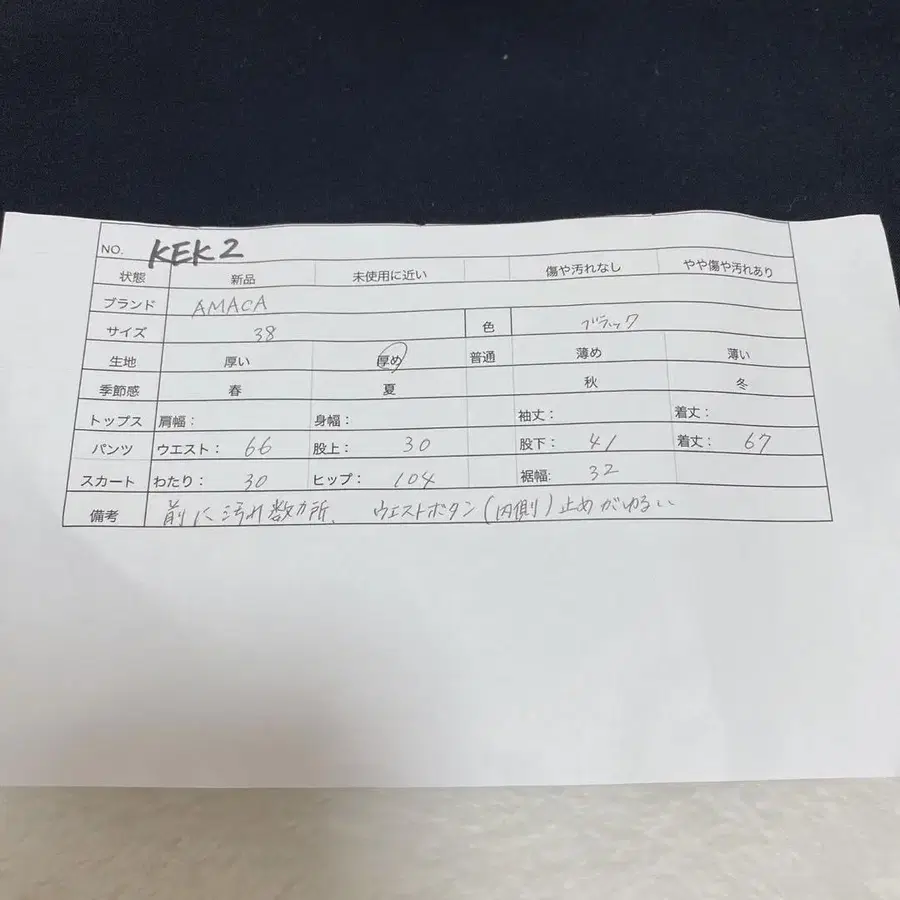 NO. KEK2
状態 新品 未使用に近い 傷や汚れなし やや傷や汚れあり
ブランド AMACA
サイズ 38 色 ブラック
生地 厚い 厚め 普通 薄め 薄い
季節感 春 夏 秋 冬
トップス 肩幅: 身幅: 袖丈: 着丈:
パンツ ウエスト: 66 股上: 30 股下: 41 着丈: 67
スカート わたり: 30 ヒップ: 104 裾幅: 32
備考 前に汚れ数カ所、 ウエストボタン(内側)止めがゆるい